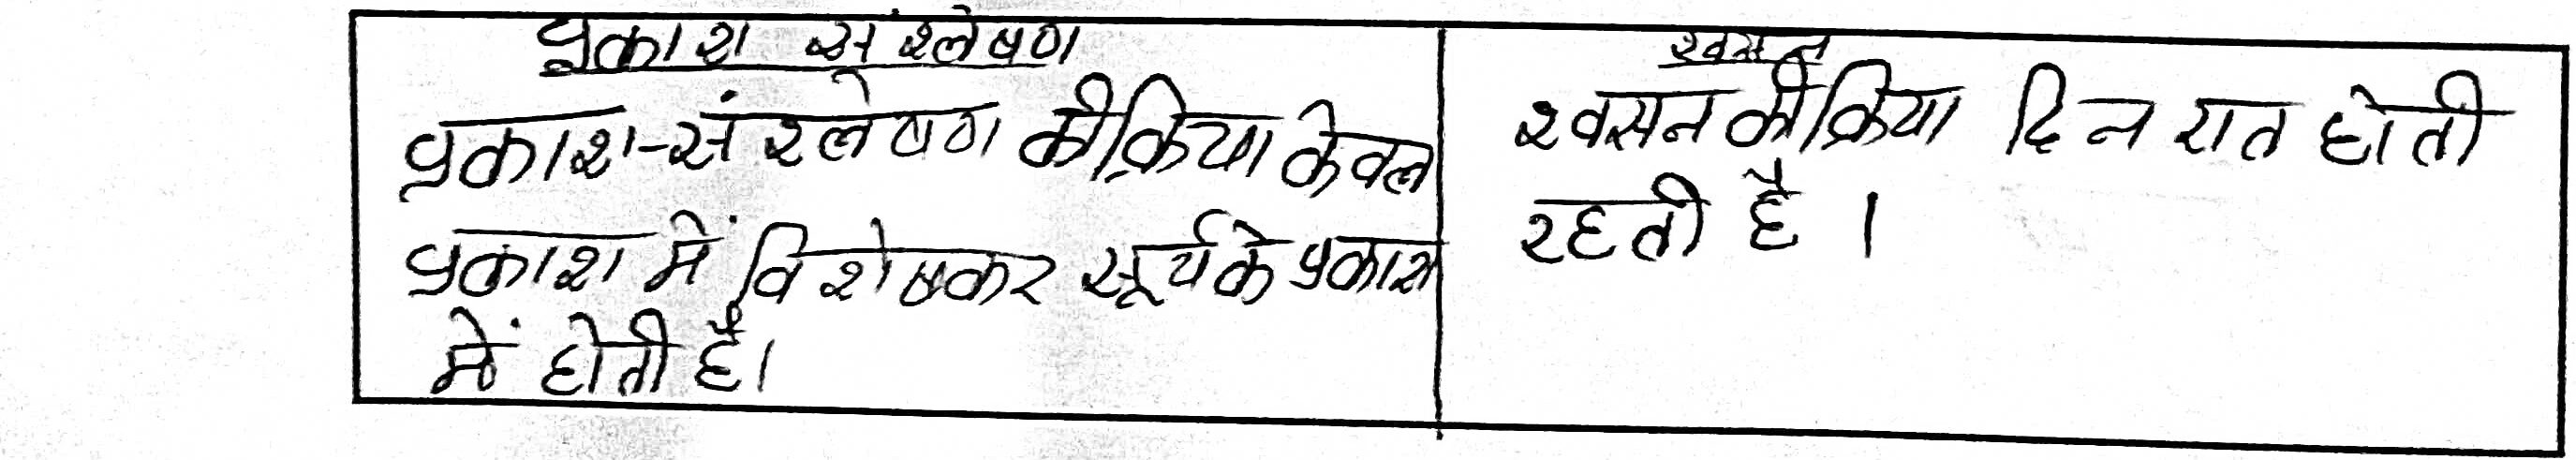 प्रकाश संश्लेषण
प्रकाश-संश्लेषण की क्रिया केवल
प्रकाश में विशेषकर सूर्य के प्रकाश
में होती है।
श्वसन
श्वसन की क्रिया दिन रात होती
रहती है।